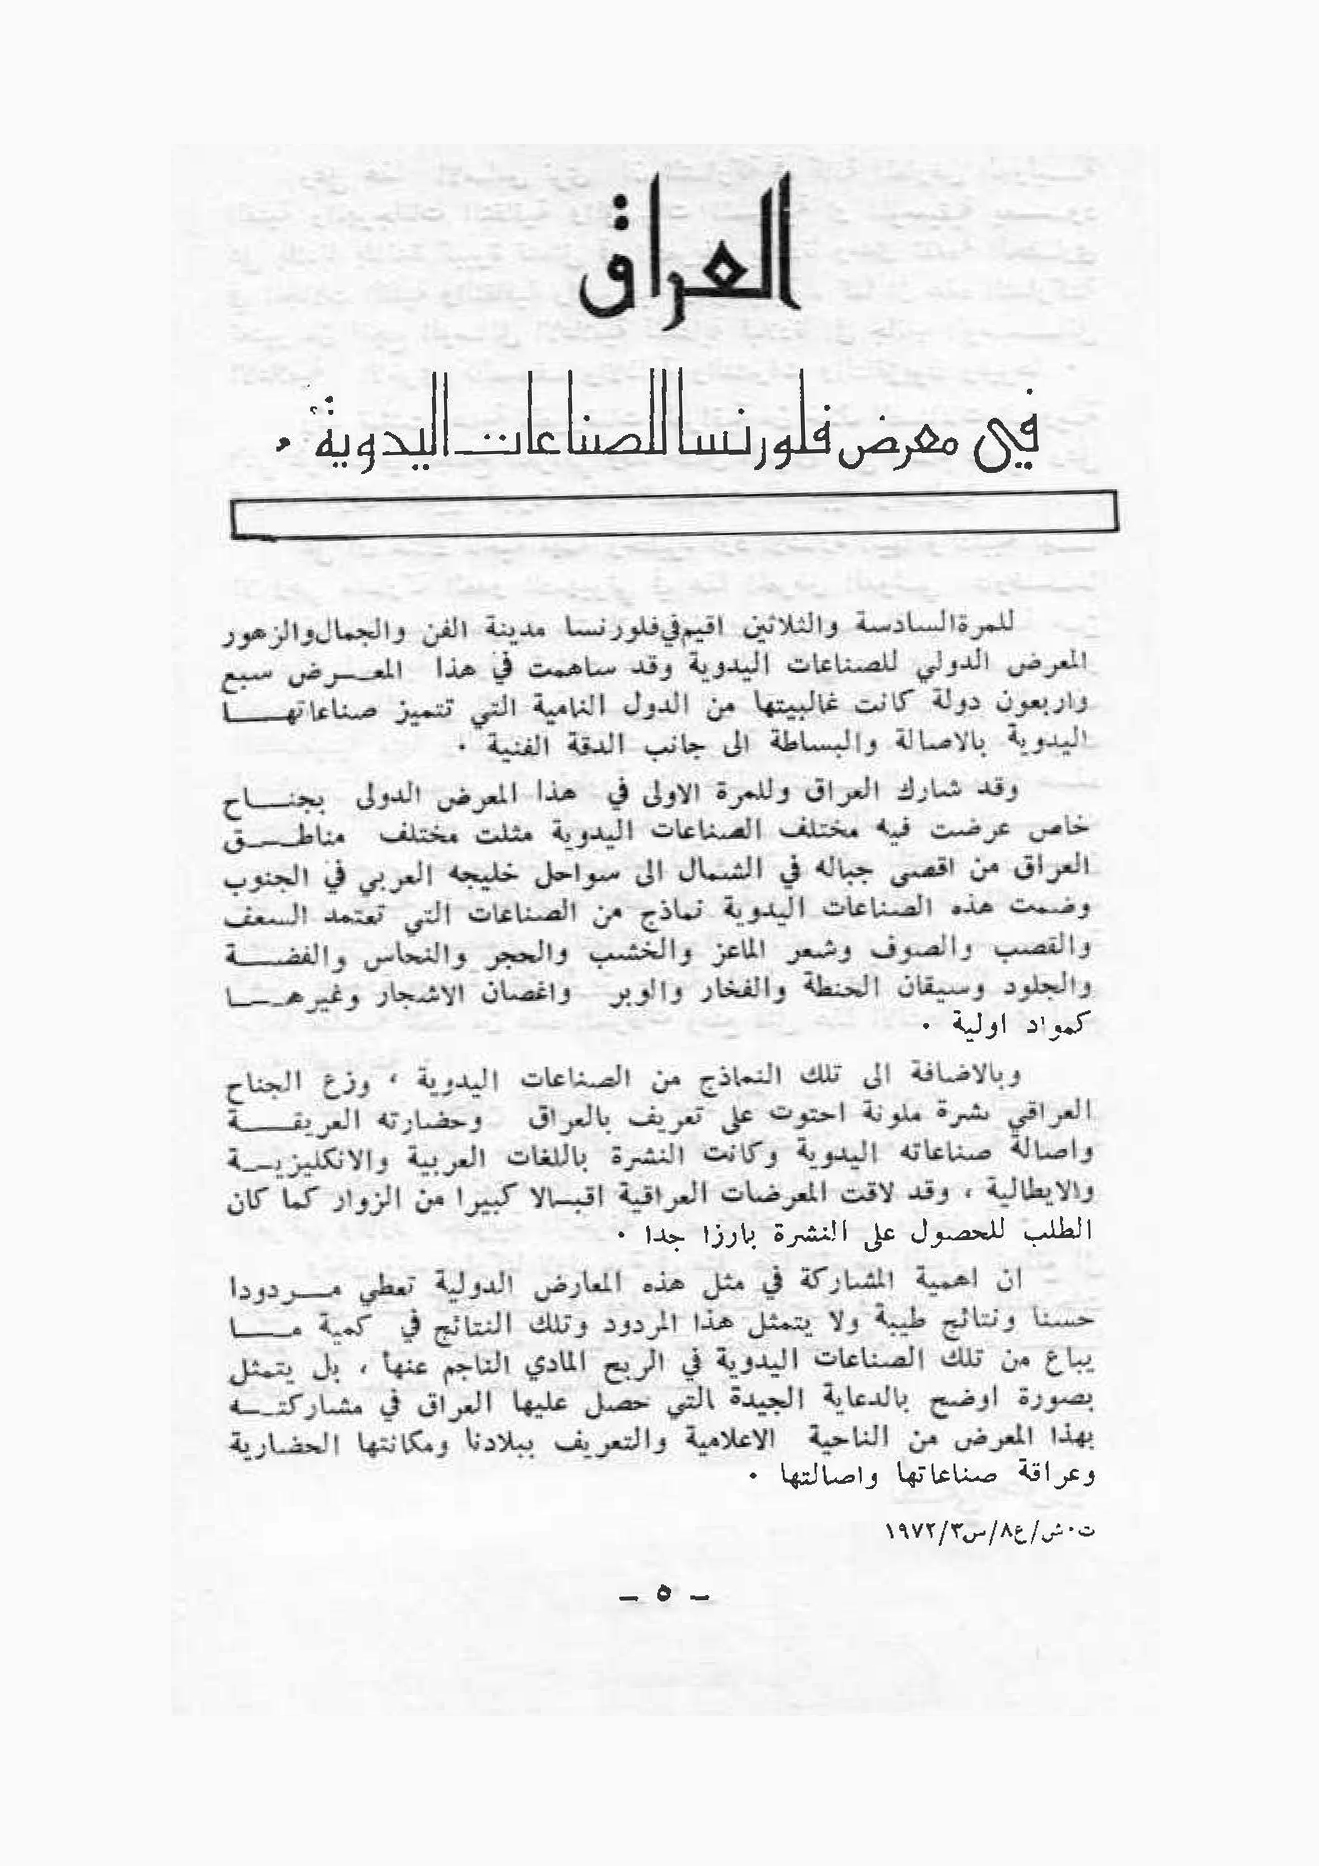 العراق
في معرض فلورنسا للصناعات اليدوية .
للمرة السادسة والثلاثين اقيم في فلورنسا مدينة الفن والجمال والزهور
المعرض الدولي للصناعات اليدوية وقد ساهمت في هذا المعـــرض سبع
واربعون دولة كانت غالبيتها من الدول النامية التي تتميز صناعاتهـــا
اليدوية بالاصالة والبساطة الى جانب الدقة الفنية .
وقد شارك العراق وللمرة الاولى في هذا المعرض الدولى بجنـــاح
خاص عرضت فيه مختلف الصناعات اليدوية مثلت مختلف مناطـــق
العراق من اقصى جباله في الشمال الى سواحل خليجه العربي في الجنوب
وضمت هذه الصناعات اليدوية نماذج من الصناعات التي تعتمد السعف
والقصب والصوف وشعر الماعز والخشب والحجر والنحاس والفضـــة
والجلود وسيقان الحنطة والفخار والوبر واغصان الاشجار وغيرهـــا
كمواد اولية .
وبالاضافة الى تلك النماذج من الصناعات اليدوية ، وزع الجناح
العراقي نشرة ملونة احتوت على تعريف بالعراق وحضارته العريقـــة
واصالة صناعاته اليدوية وكانت النشرة باللغات العربية والانكليزيـــة
والايطالية ، وقد لاقت المعرضات العراقية اقبـالا كبيرا من الزوار كما كان
الطلب للحصول على النشرة بارزا جدا .
ان اهمية المشاركة في مثل هذه المعارض الدولية تعطي مـــردودا
حسنا ونتائج طيبة ولا يتمثل هذا المردود وتلك النتائج في كمية مـــا
يباع من تلك الصناعات اليدوية في الربح المادي الناجم عنها ، بل يتمثل
بصورة اوضح بالدعاية الجيدة التي حصل عليها العراق في مشاركتـــه
بهذا المعرض من الناحية الاعلامية والتعريف ببلادنا ومكانتها الحضارية
وعراقة صناعاتها واصالتها .
ت.ش/ع٨/س٣/١٩٧٢
- ٥ -